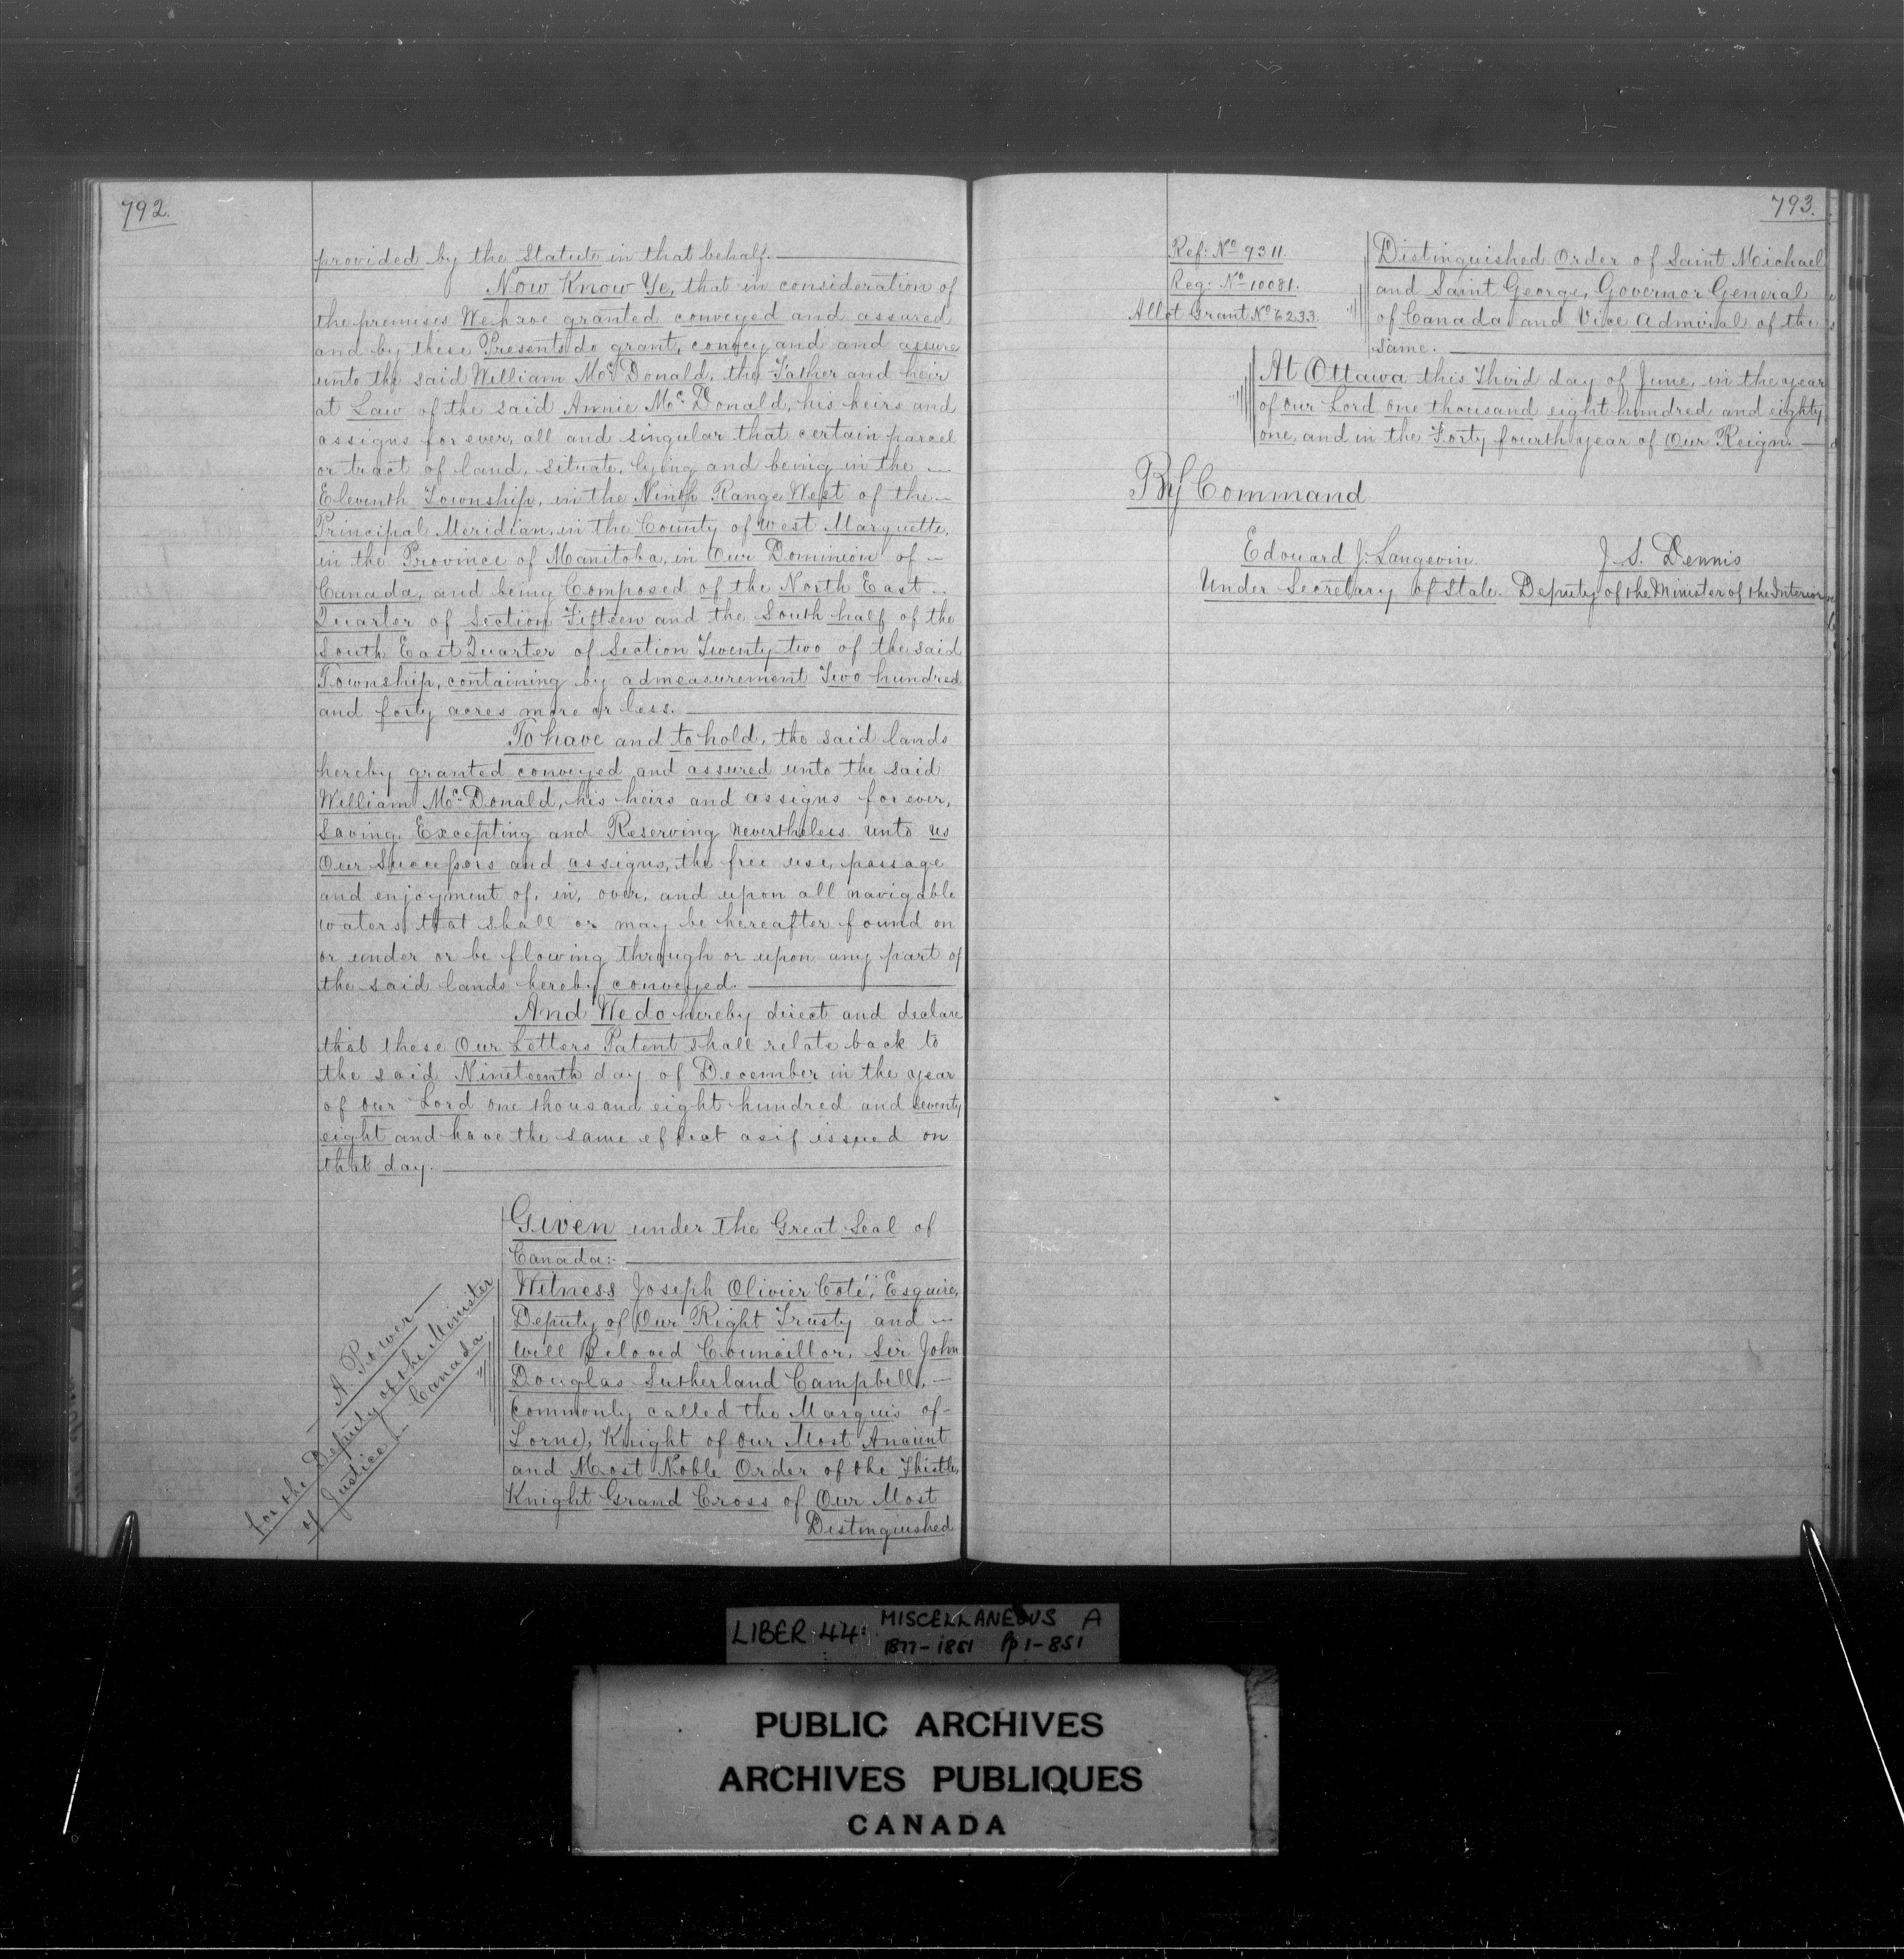 792.
provided by the Statute in that behalf.
Now Know Ye, that in consideration of
the premises We have granted conveyed and assured
and by these Presents do grant, convey and and assure
unto the said William Mc Donald, the Father and heir
at Law of the said Annie Mc Donald, his heirs and
assigns for ever, all and singular that certain parcel
or tract of land, situate, lying and being in the —
Eleventh Township, in the Ninth Range West of the —
Principal Meridian, in the County of West Marquette,
in the Province of Manitoba, in Our Dominion of —
Canada, and being Composed of the North East —
Quarter of Section Fifteen and the South half of the
South East Quarter of Section Twenty two of the said
Township, containing by admeasurement Two hundred
and forty acres more or less.
To have and to hold, the said lands
hereby granted conveyed and assured unto the said
William Mc Donald, his heirs and assigns for ever,
Saving, Excepting and Reserving nevertheless unto us
Our Successors and assigns, the free use, passage
and enjoyment of, in, over, and upon all navigable
waters that shall or may be hereafter found on
or under or be flowing through or upon any part of
the said lands hereby conveyed.
And We do hereby direct and declare
that these Our Letters Patent shall relate back to
the said Nineteenth day of December in the year
of our Lord one thousand eight hundred and seventy
eight and have the same effect as if issued on
that day.
Given under the Great Seal of
Canada:
Witness Joseph Olivier Coté, Esquire,
Deputy of Our Right Trusty and —
Well Beloved Councillor, Sir John
Douglas Sutherland Campbell, —
Commonly called the Marquis of —
Lorne), Knight of Our Most Ancient
and Most Noble Order of the Thistle,
Knight Grand Cross of Our Most
Distinguished
A. Power —
for the Deputy of the Minister
of Justice — Canada.
793.
Ref: No 9311.
Reg: No 10081.
Allot Grant No 6233.
Distinguished Order of Saint Michael
and Saint George, Governor General
of Canada and Vice Admiral of the
same.
At Ottawa this Third day of June, in the year
of our Lord one thousand eight hundred and eighty
one, and in the Forty fourth year of Our Reign. —
By Command
Edouard J. Langevin.
Under Secretary of State.
J. S. Dennis
Deputy of the Minister of the Interior
LIBER 44: MISCELLANEOUS A
1877-1881 Pp 1-851
PUBLIC ARCHIVES
ARCHIVES PUBLIQUES
CANADA